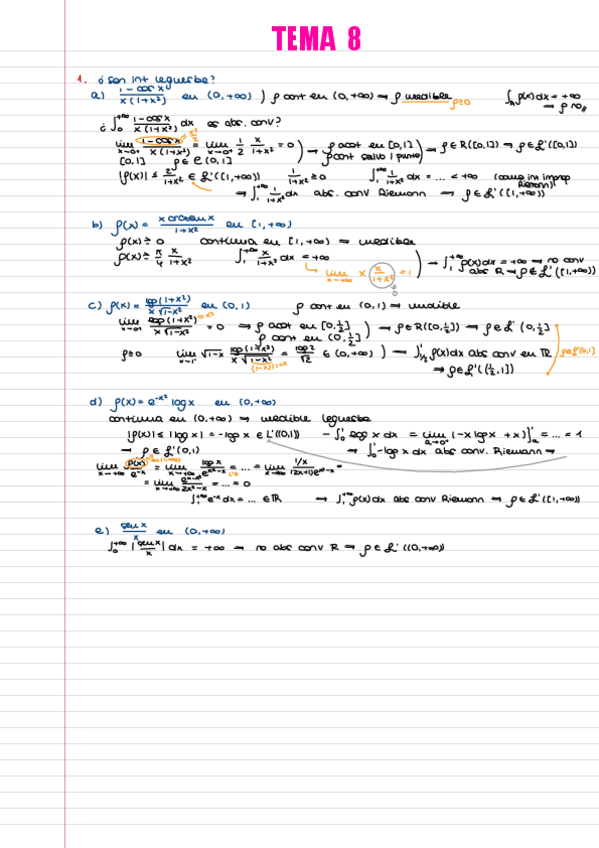 TEMA 8
1. ¿son int lebesgue?
a) (1-cos x)/(x(1+x²)) en (0,+∞) ) f cont en (0,+∞) → f medible f≥0 ∫ f(x)dx = +∞ → f no
¿ ∫₀^{+∞} (1-cos x)/(x(1+x²)) dx es abs. conv?
lim_{x→0⁺} (1-cos x)/(x(1+x²)) = lim_{x→0⁺} 1/2 x/(1+x²) = 0 ) → f acot en [0,1] f cont salvo 1 punto ) → f∈R([0,1]) → f∈L¹([0,1])
[0,1] f∈C(0,1]
|f(x)| ≤ 2/(1+x²) ∈ L¹([1,+∞)) 1/(1+x²) ≥ 0 ∫₁^{+∞} 1/(1+x²) dx = ... < +∞ (como int improp Riemann)
→ ∫₁^{+∞} 1/(1+x²) dx abs. conv Riemann → f∈L¹([1,+∞))
b) f(x) = (x arctan x)/(1+x²) en [1,+∞)
f(x) ≥ 0 continua en [1,+∞) → medible
f(x) ≥ π/4 x/(1+x²) ∫₁^{+∞} x/(1+x²) dx = +∞ ) → ∫₁^{+∞} f(x)dx = +∞ → no conv abs R → f∉L¹([1,+∞))
lim_{x→+∞} x x/(1+x²) = 1
c) f(x) = log(1+x²)/(x√(1-x²)) en (0,1) f cont en (0,1) → medible
lim_{x→0⁺} log(1+x²)/(x√(1-x²)) = 0 → f acot en [0,1/2] f cont en (0,1/2] ) → f∈R([0,1/2]) → f∈L¹(0,1/2]
f≥0 lim_{x→1⁻} √(1-x) log(1+x²)/(x√(1-x²)) = log 2/√2 ∈ (0,+∞) ) → ∫_{1/2}^1 f(x)dx abs conv en R f∈L¹(0,1]
(1-x)(1+x) → f∈L¹([1/2,1])
d) f(x) = e^{-x²} log x en (0,+∞)
continua en (0,+∞) → medible lebesgue
|f(x)| ≤ |log x| = -log x ∈ L¹((0,1)) -∫₀¹ log x dx = lim_{a→0⁺} (-x log x + x)]¹ₐ = ... = 1
→ f∈L¹(0,1) → ∫₀¹ -log x dx abs conv. Riemann →
lim_{x→+∞} f(x)/e^{-x} = lim_{x→+∞} log x/e^{x²-x} = ... = lim_{x→+∞} (1/x)/((2x+1)e^{x²-x}) =
= ... = 0
∫₁^{+∞} e^{-x} dx = ... ∈ R → ∫₁^{+∞} f(x) dx abs conv Riemann → f∈L¹([1,+∞))
e) sen x/x en (0,+∞)
∫₀^{+∞} |sen x/x| dx = +∞ → no abs conv R → f∉L¹((0,+∞))